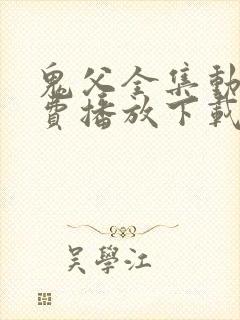 鬼父全集動
費播放下載
吳學江